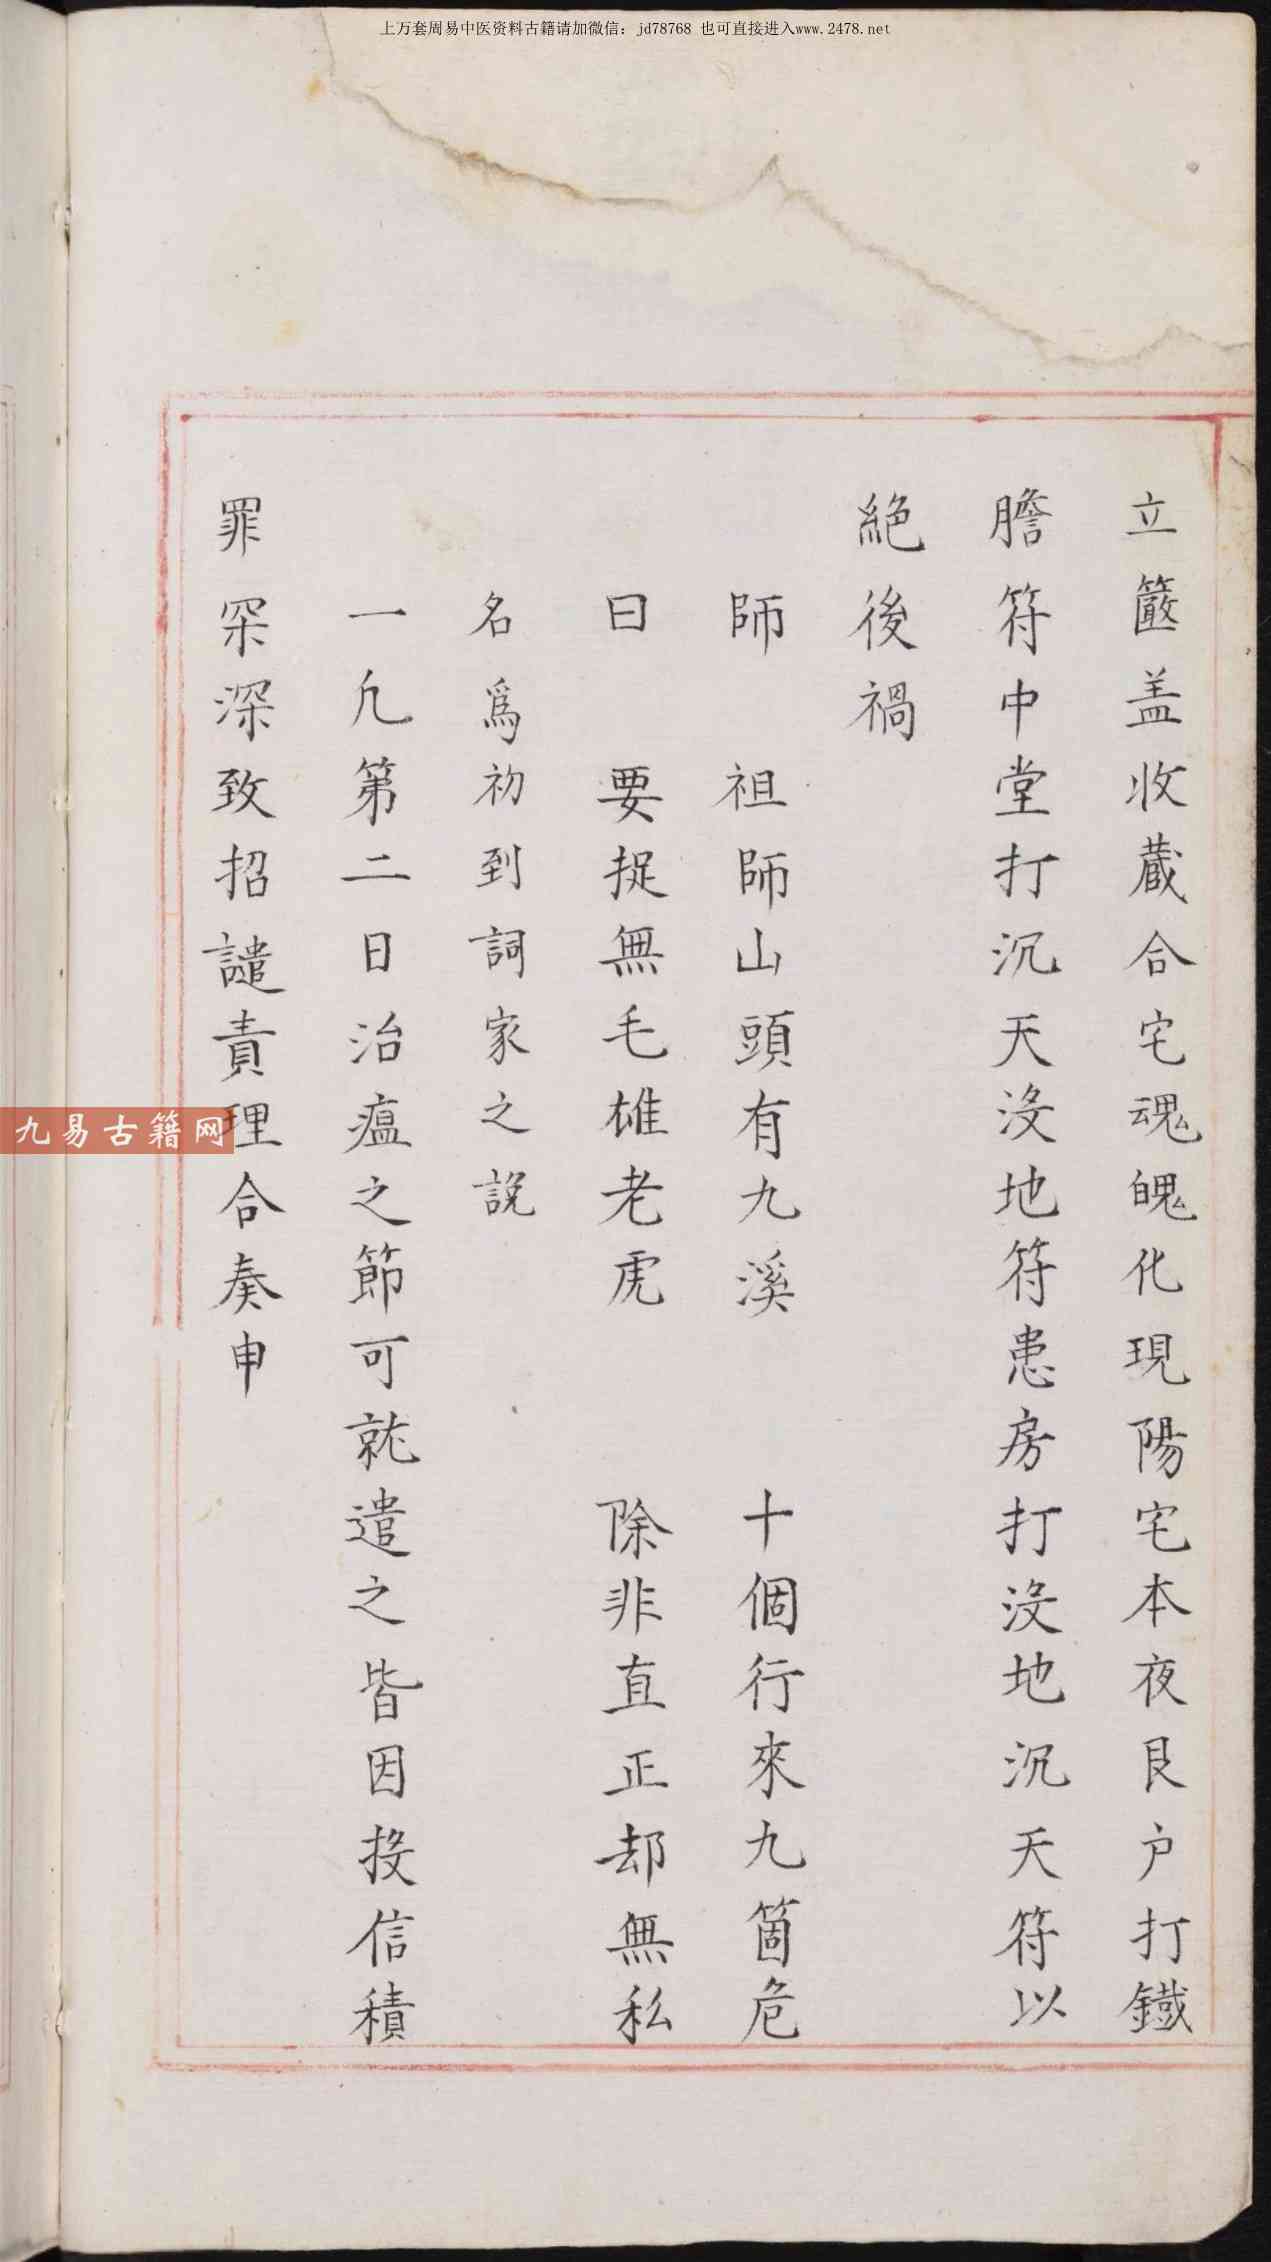 上万套周易中医资料古籍请加微信：jd78768 也可直接进入www.2478.net
立簽盖收蔵合宅魂魄化現陽宅本夜艮户打鐵
膽符中堂打沉天沒地符患房打沒地沉天符以
絕後禍
師 祖師山頭有九溪 十個行來九箇危
曰 要捉無毛雄老虎 除非直正却無私
名爲初到詞家之說
一凡第二日治瘟之節可就遣之皆因投信積
罪深致招譴責理合奏申
九易古籍网